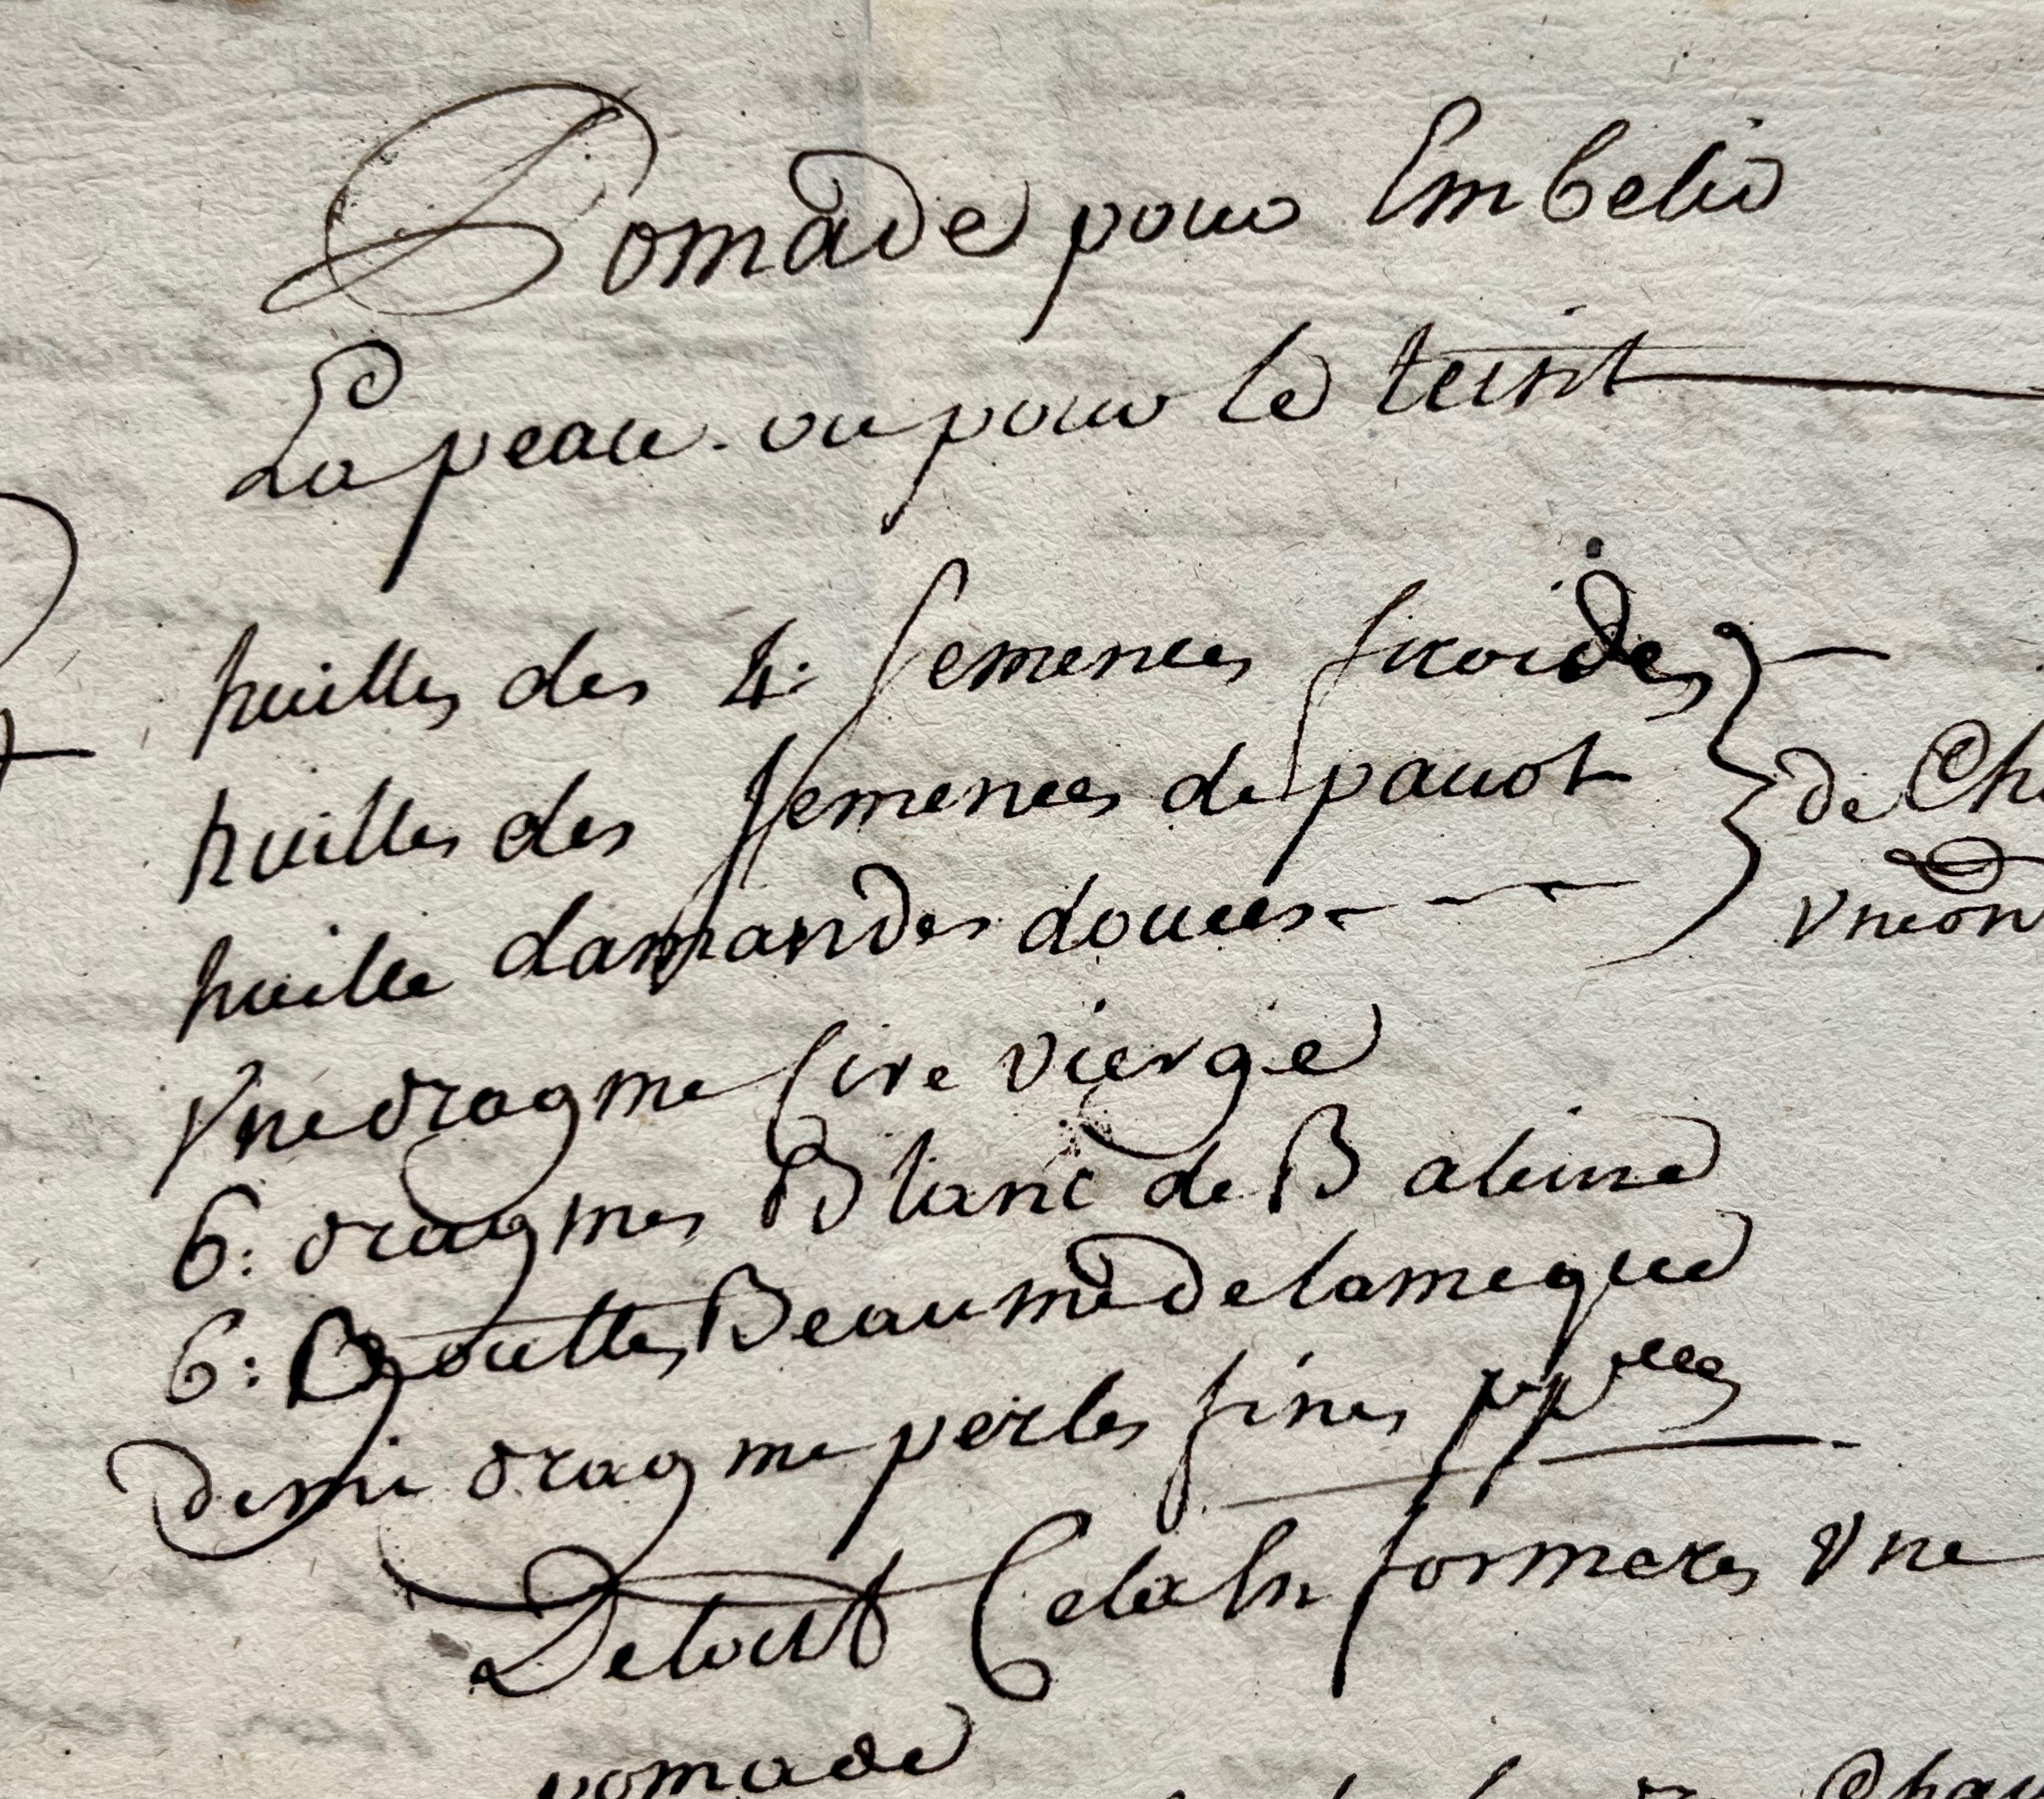 Pomade pour Embelir
La peau. ou pour le teint
huilles des 4: semences froides
huilles des semences de pavot
de Ch
huille damandes douces
vne on
vne dragme Cire vierge
6: dragmes Blanc de Baleine
6: Gouttes Beaume de la meque
demi dragme perles fines pp.rees
De tout Cela En formeres vne
pomade